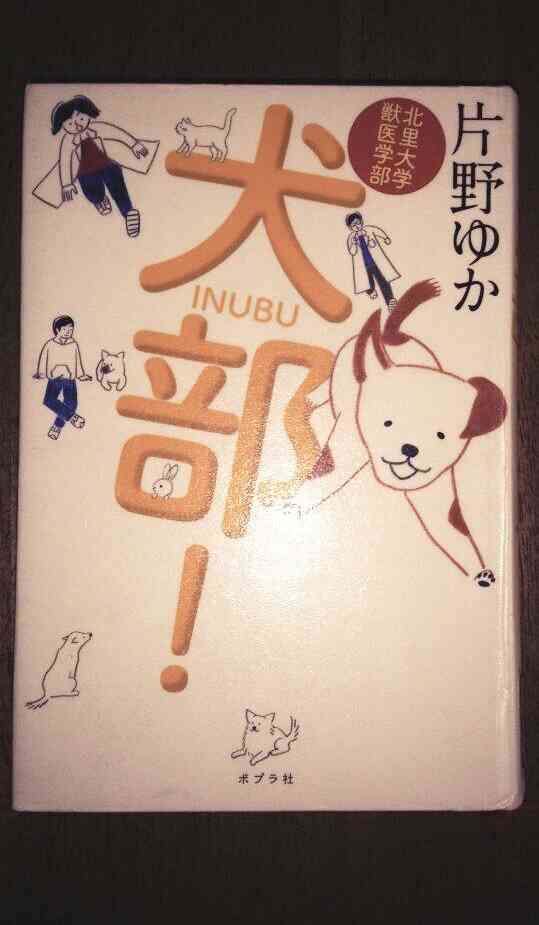 片野ゆか
北里大学
獣医学部
犬部!
INUBU
ポプラ社